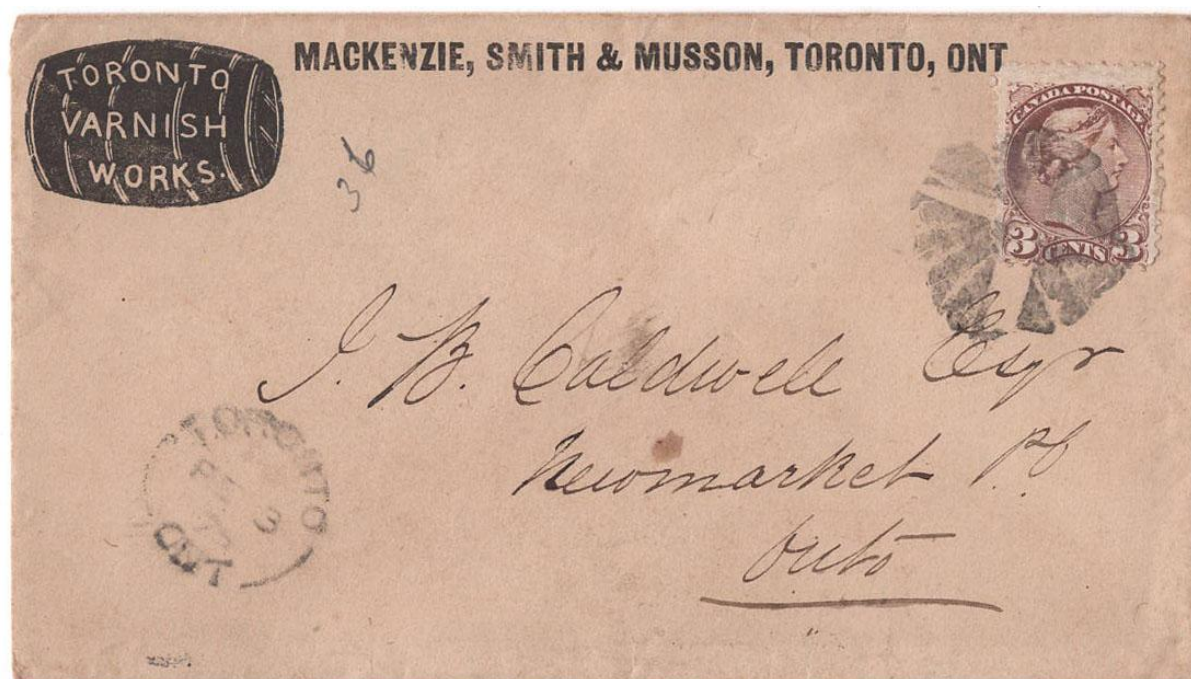 TORONTO
VARNISH
WORKS.
MACKENZIE, SMITH & MUSSON, TORONTO, ONT
CANADA POSTAGE
3 CENTS 3
36
J. B. Caldwell Esqr
Newmarket P.O
Onto
TORONTO
ONT